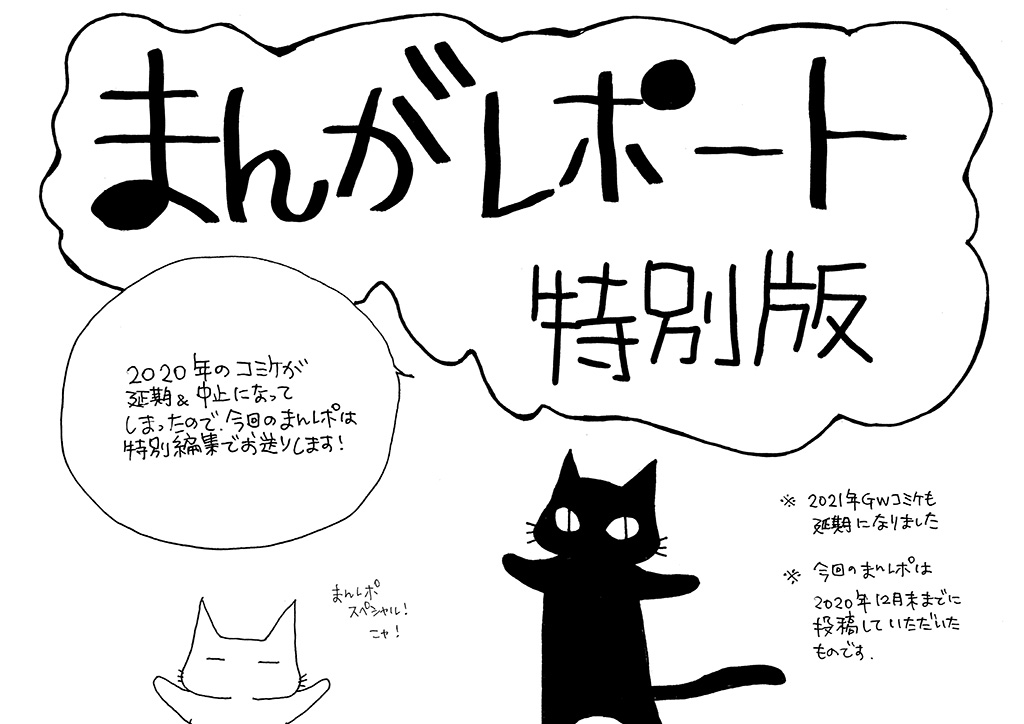 まんがレポート
特別版
2020年のコミケが
延期&中止になって
しまったので、今回のまんレポは
特別編集でお送りします!
まんレポ
スペシャル!
ニャ!
※ 2021年GWコミケも
延期になりました
※ 今回のまんレポは
2020年12月末までに
投稿していただいた
ものです.